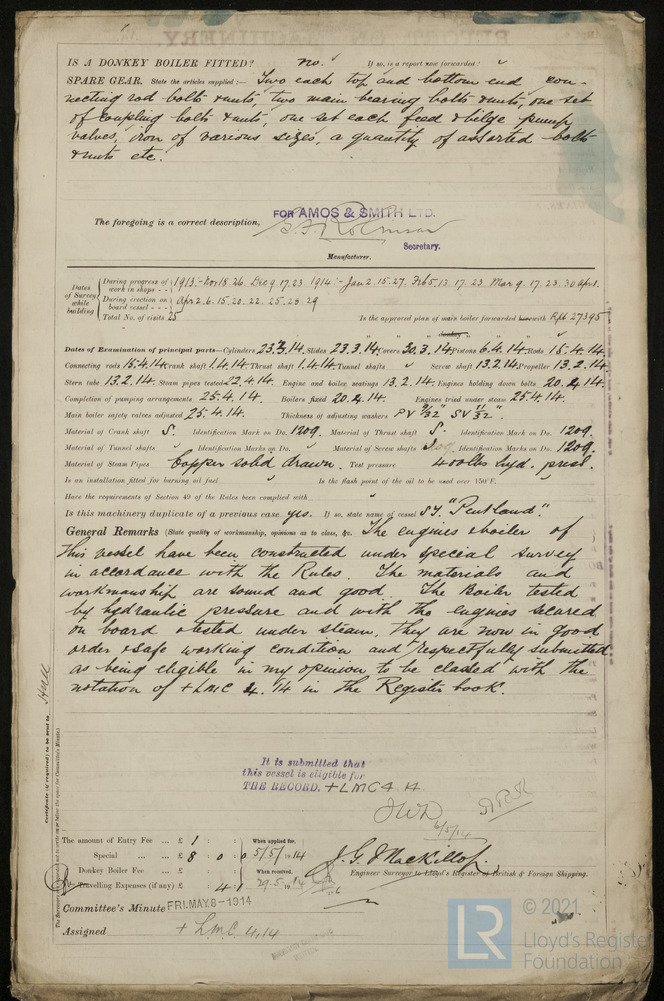 IS A DONKEY BOILER FITTED? no. If so, is a report now forwarded?
SPARE GEAR. State the articles supplied:— Two each top and bottom end con-
necting rod bolts & nuts, two main bearing bolts & nuts, one set
of coupling bolts & nuts, one set each feed & bilge pump
valves, iron of various sizes, a quantity of assorted bolts
& nuts etc.
The foregoing is a correct description,
FOR AMOS & SMITH LTD.
Robinson
Secretary.
Manufacturer.
Dates of Survey while building
During progress of work in shops - - 1913:- Nov 18. 26. Dec 9. 17. 23. 1914:- Jan 2. 15. 27. Feb 5. 13. 17. 23. Mar 9. 17. 23. 30 Apr 1.
During erection on board vessel - - - Apr 2. 6. 15. 20. 22. 25. 28. 29
Total No. of visits 25
Is the approved plan of main boiler forwarded herewith Rpt 27395
" " donkey " " "
Dates of Examination of principal parts—Cylinders 23.3.14. Slides 23.3.14. Covers 30.3.14. Pistons 6.4.14. Rods 15.4.14.
Connecting rods 15.4.14. Crank shaft 1.4.14. Thrust shaft 1.4.14. Tunnel shafts Screw shaft 13.2.14. Propeller 13.2.14.
Stern tube 13.2.14. Steam pipes tested 22.4.14. Engine and boiler seatings 13.2.14. Engines holding down bolts 20.4.14.
Completion of pumping arrangements 25.4.14. Boilers fixed 20.4.14. Engines tried under steam 25.4.14.
Main boiler safety valves adjusted 25.4.14. Thickness of adjusting washers PV 9/32" SV 11/32".
Material of Crank shaft S. Identification Mark on Do. 1209. Material of Thrust shaft S. Identification Mark on Do. 1209.
Material of Tunnel shafts Identification Marks on Do. Material of Screw shafts Identification Marks on Do. 1209.
Material of Steam Pipes Copper solid drawn. Test pressure 400 lbs hyd. press.
Is an installation fitted for burning oil fuel Is the flash point of the oil to be used over 150°F.
Have the requirements of Section 49 of the Rules been complied with
Is this machinery duplicate of a previous case yes. If so, state name of vessel S.T. "Pentland".
General Remarks (State quality of workmanship, opinions as to class, &c. The engines & boiler of
this vessel have been constructed under special survey
in accordance with the Rules. The materials and
workmanship are sound and good. The Boiler tested
by hydraulic pressure and with the engines secured
on board & tested under steam. They are now in good
order & safe working condition and respectfully submitted
as being eligible in my opinion to be classed with the
notation of + LMC 4.14 in the Register book.
Hull
Certificate (if required) to be sent to
It is submitted that
this vessel is eligible for
THE RECORD. + LMC 4.14
JWD
6/5/14
The amount of Entry Fee ... £ 1 : :
Special ... ... £ 8 : 0 : 0
Donkey Boiler Fee ... £ : :
Travelling Expenses (if any) £ : 4 : 1
When applied for,
5/5/1914
When received,
29.5.1914
J. G. Mackillop.
Engineer Surveyor to Lloyd's Register of British & Foreign Shipping.
Committee's Minute FRI. MAY. 8 - 1914
Assigned + LMC 4.14
LR
© 2021
Lloyd's Register
Foundation